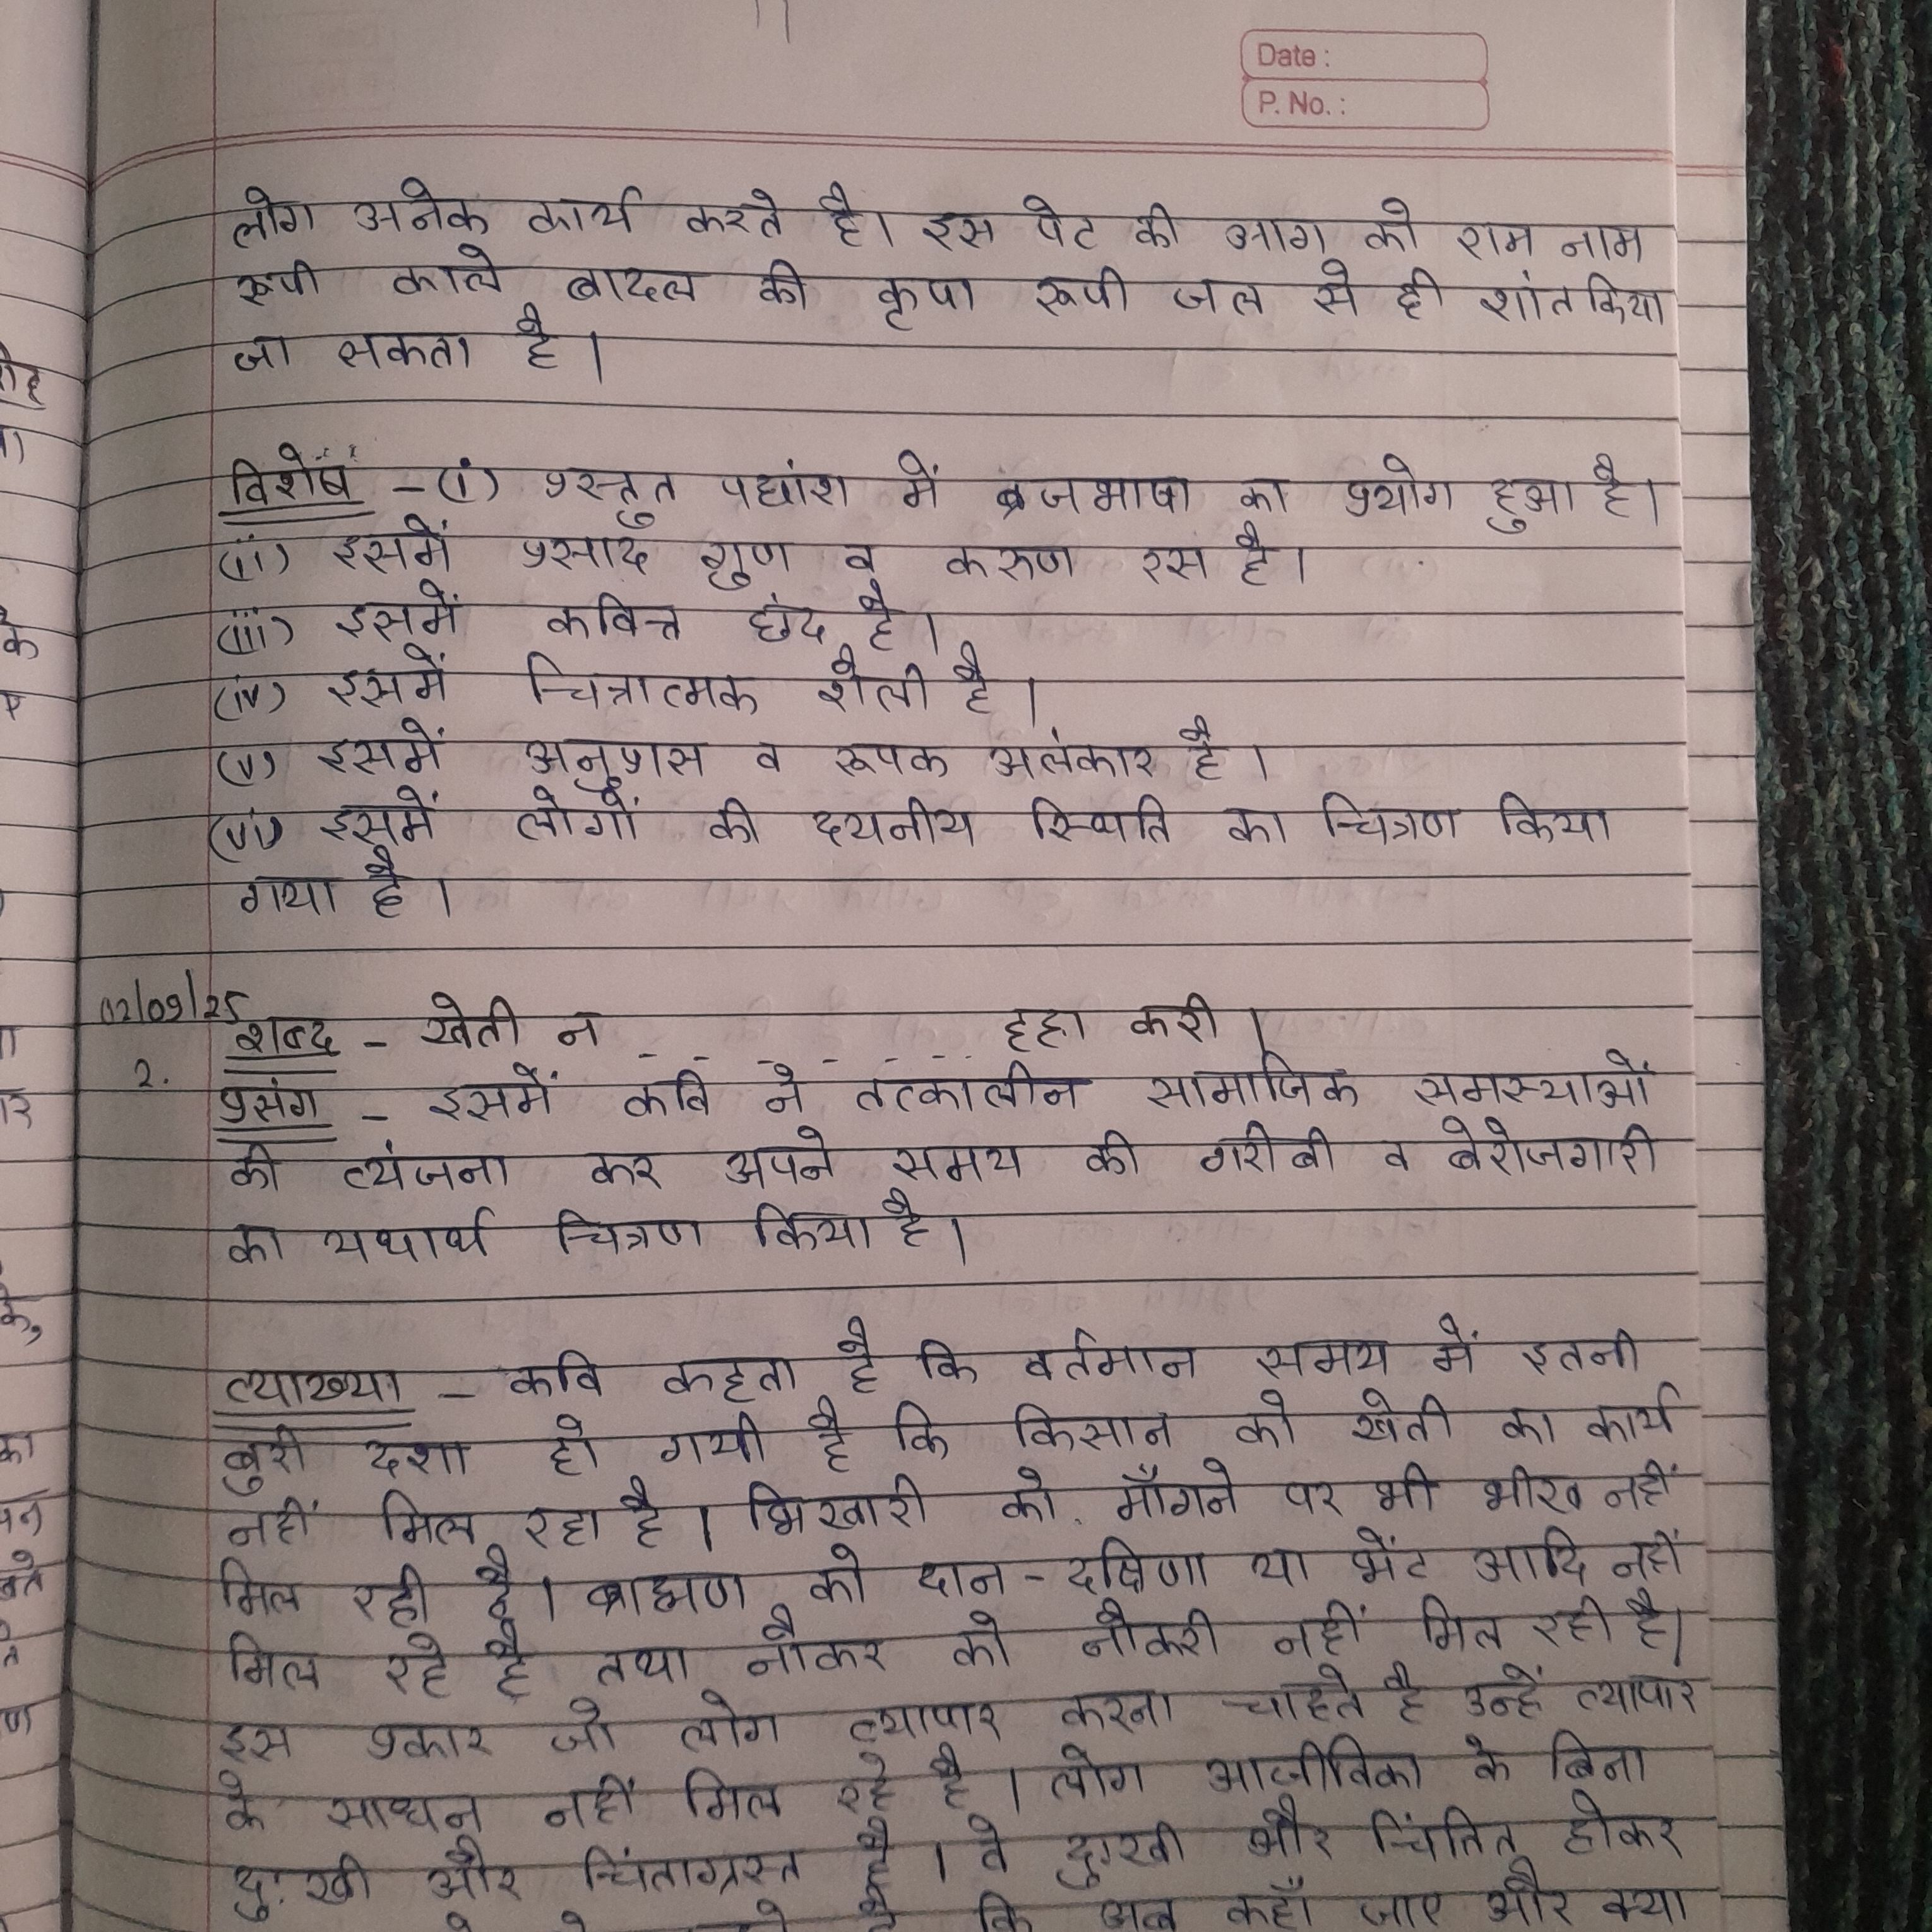 Date :
P. No. :
लोग अनेक कार्य करते है। इस पेट की आग को राम नाम
रूपी काले बादल की कृपा रूपी जल से ही शांत किया
जा सकता है।
विशेष - (i) प्रस्तुत पद्यांश में ब्रजभाषा का प्रयोग हुआ है।
(ii) इसमें प्रसाद गुण व करुण रस है।
(iii) इसमें कवित्त छंद है।
(iv) इसमें चित्रात्मक शैली है।
(v) इसमें अनुप्रास व रूपक अलंकार है।
(vi) इसमें लोगों की दयनीय स्थिति का चित्रण किया
गया है।
02/09/25
शब्द - खेती न - - - - - - - हहा करी।
2.
प्रसंग - इसमें कवि ने तत्कालीन सामाजिक समस्याओं
की व्यंजना कर अपने समय की गरीबी व बेरोजगारी
का यथार्थ चित्रण किया है।
व्याख्या - कवि कहता है कि वर्तमान समय में इतनी
बुरी दशा हो गयी है कि किसान को खेती का कार्य
नहीं मिल रहा है। भिखारी को माँगने पर भी भीख नहीं
मिल रही है। ब्राह्मण को दान-दक्षिणा या भेंट आदि नहीं
मिल रहे है तथा नौकर को नौकरी नहीं मिल रही है।
इस प्रकार जो लोग व्यापार करना चाहते है उन्हें व्यापार
के साधन नहीं मिल रहे है। लोग आजीविका के बिना
दुःखी और चिंताग्रस्त है। वे दुःखी और चिंतित होकर
कि अब कहाँ जाए और क्या